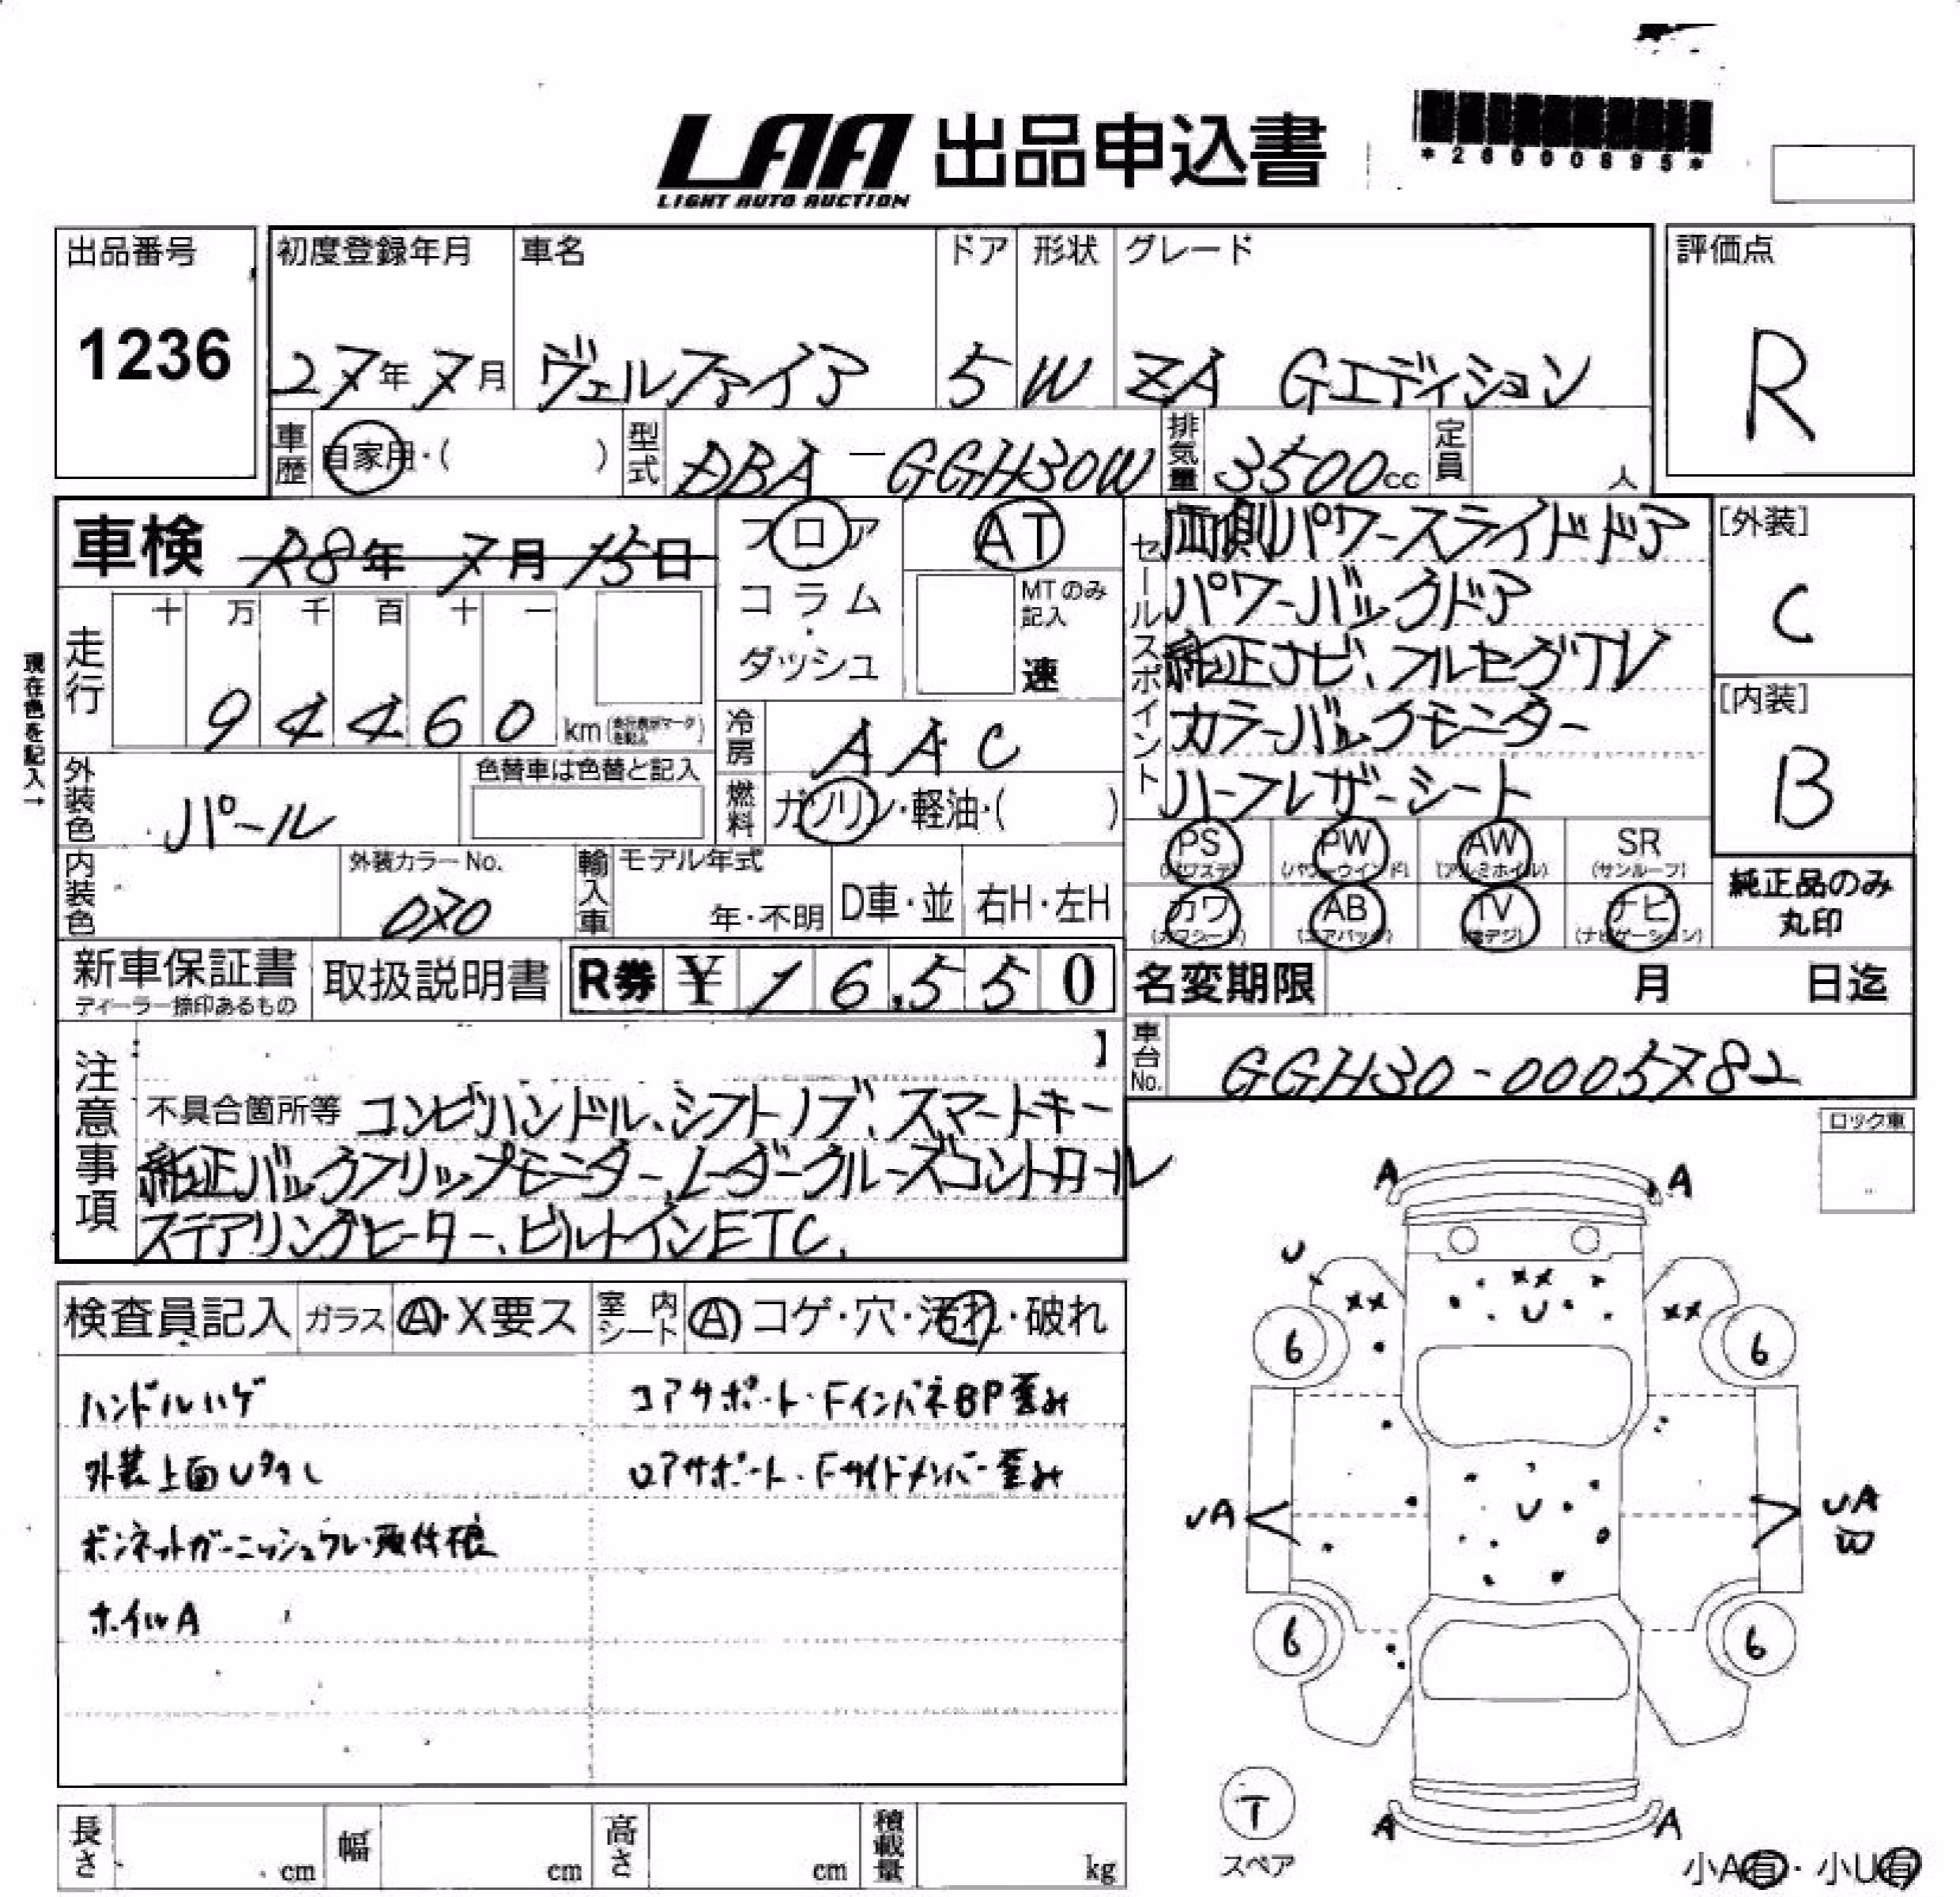 LAA 出品申込書
LIGHT AUTO AUCTION
*26000895*
出品番号 初度登録年月 車名 ドア 形状 グレード 評価点
1236 27年 7月 ヴェルファイア 5 W ZA Gエディション R
車歴 自家用・( ) 型式 DBA-GGH30W 排気量 3500cc 定員 人
車検 R8年 7月 15日 フロア AT
コラム・ダッシュ MTのみ記入 速
セールスポイント 両側パワースライドドア
パワーバックドア
純正ナビ、フルセグTV
カラーバックモニター
ハーフレザーシート
[外装] C
[内装] B
現在色を記入→
走行 十 万 千 百 十 一
94460 km(走行表示マークを記入)
冷房 AAC
外装色 パール 色替車は色替と記入
燃料 ガソリン・軽油・( )
PS (パワステ) PW (パワーウインド) AW (アルミホイル) SR (サンルーフ)
カワ (カワシート) AB (エアバック) TV (地デジ) ナビ (ナビゲーション)
純正品のみ丸印
内装色 外装カラーNo. 070 輸入車 モデル年式 年・不明 D車・並 右H・左H
新車保証書 ディーラー捺印あるもの 取扱説明書 R券 ¥16,550
名変期限 月 日迄
車台No. GGH30-0005782
注意事項 】
不具合箇所等 コンビハンドル、シフトノブ、スマートキー
純正バックフリップモニター、レーダークルーズコントロール
ステアリングヒーター、ビルトインETC.
ロック車
検査員記入 ガラス A・X要ス 室内シート A コゲ・穴・汚れ・破れ
ハンドルハゲ コアサポート・FインパネBP歪み
外装上面Uタタシ ロアサポート・Fサイドメンバー歪み
ボンネットガーニッシュワレ・取付痕
ホイルA
A A
U
×× ×× ××
U
6 6
UA U UA
W
6 6
A A
T
スペア
小A有・小U有
長さ cm 幅 cm 高さ cm 積載量 kg